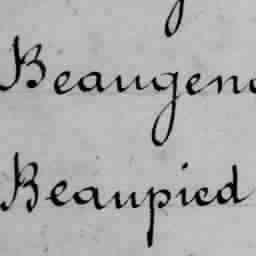 Beaugen
Beaupied